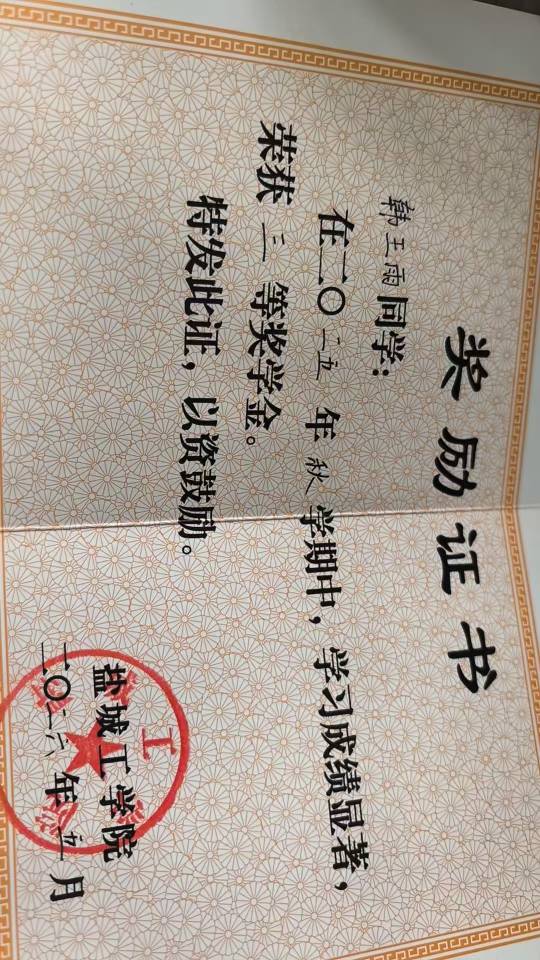 奖励证书
韩王雨同学：
在二〇二五年秋学期中，学习成绩显著，
荣获三等奖学金。
特发此证，以资鼓励。
盐城工学院
二〇二六年五月
工